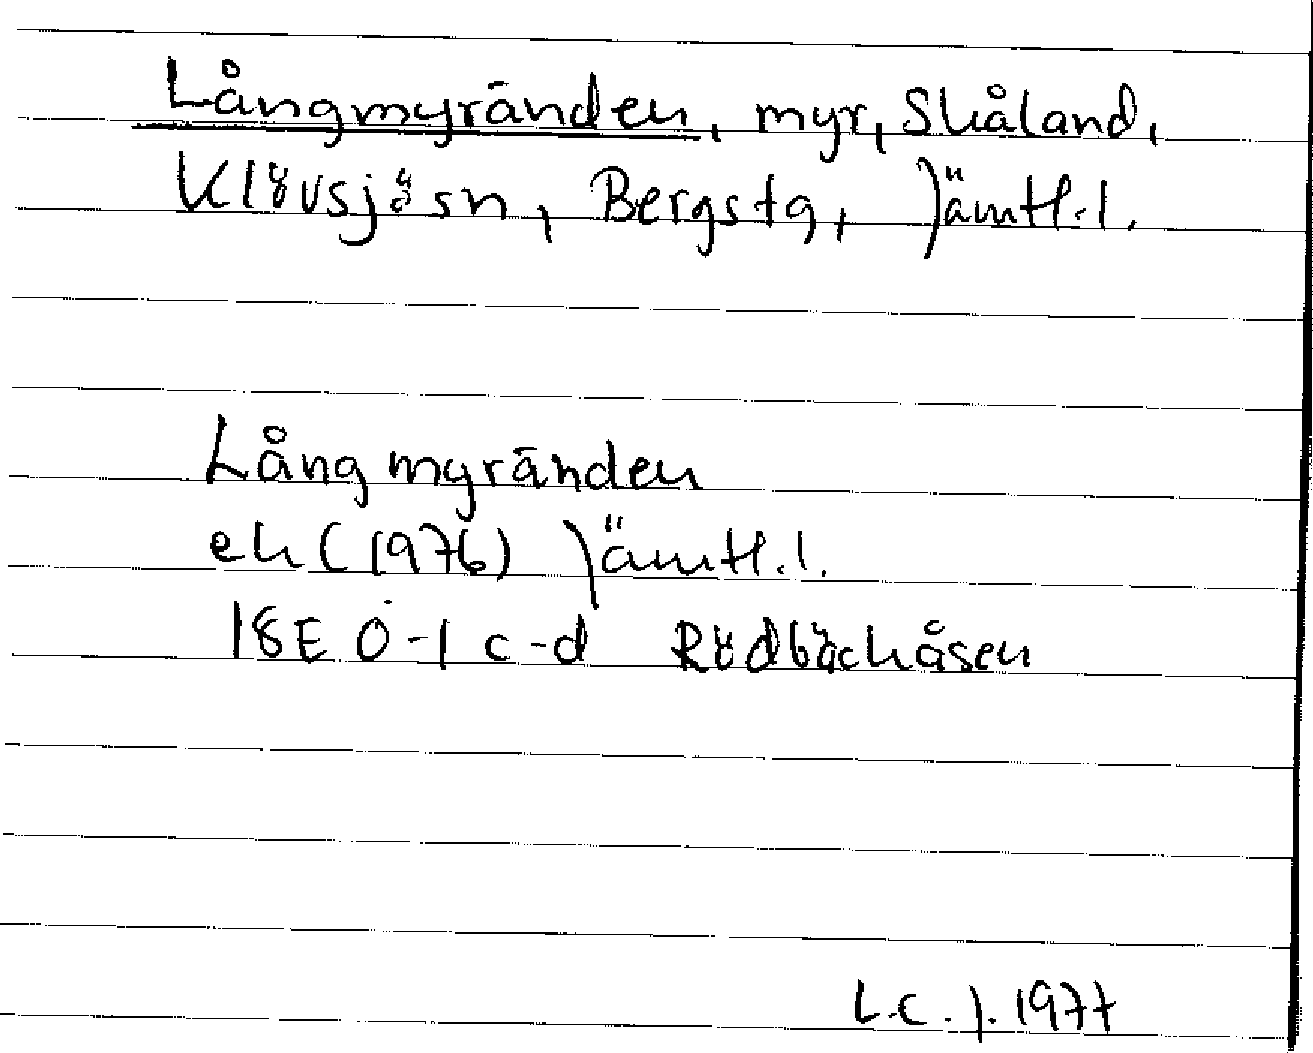 Långmyränden, myr, Skåland,
Klövsjö sn, Bergs tg, Jämtl. l.
Långmyränden
ek (1976) Jämtl. l.
18E 0-1 c-d Rödbäckåsen
L.C.J. 1977